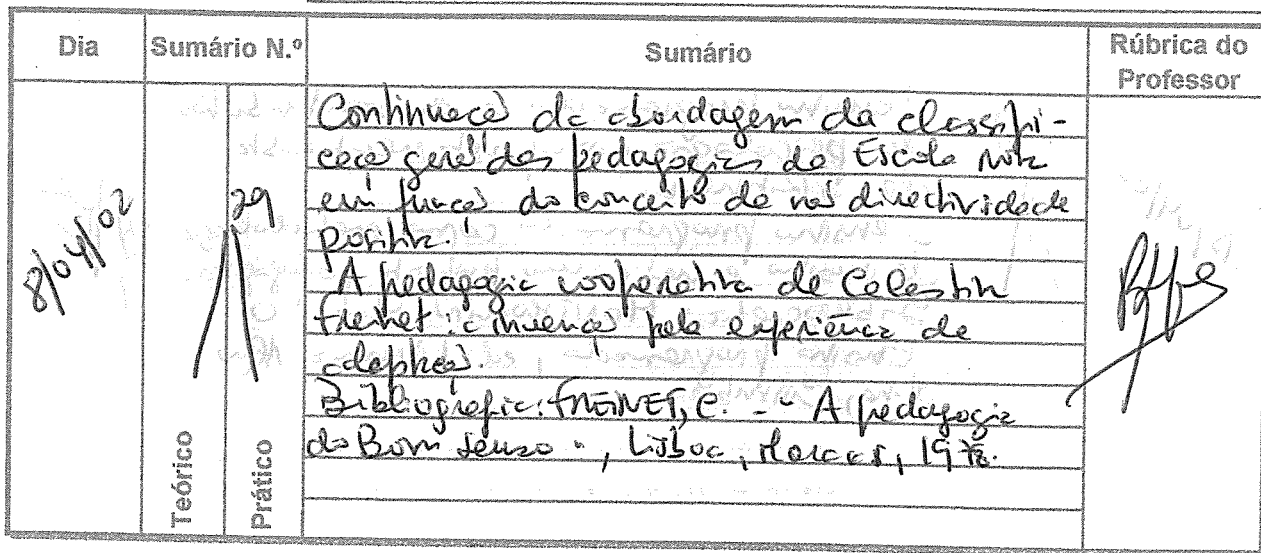 Dia Sumário N.º Sumário Rúbrica do Professor
8/04/02
29
Teórico
Prático
Continuação da abordagem da classifi-
cação geral das pedagogias da Escola Nova
em função do conceito de não directividade
positiva.
A pedagogia cooperativa de Celestin
Freinet: a invenção pela experiência de
adaptação.
Bibliografia: FREINET, C. - "A pedagogia
do Bom Senso", Lisboa, Moraes, 1978.